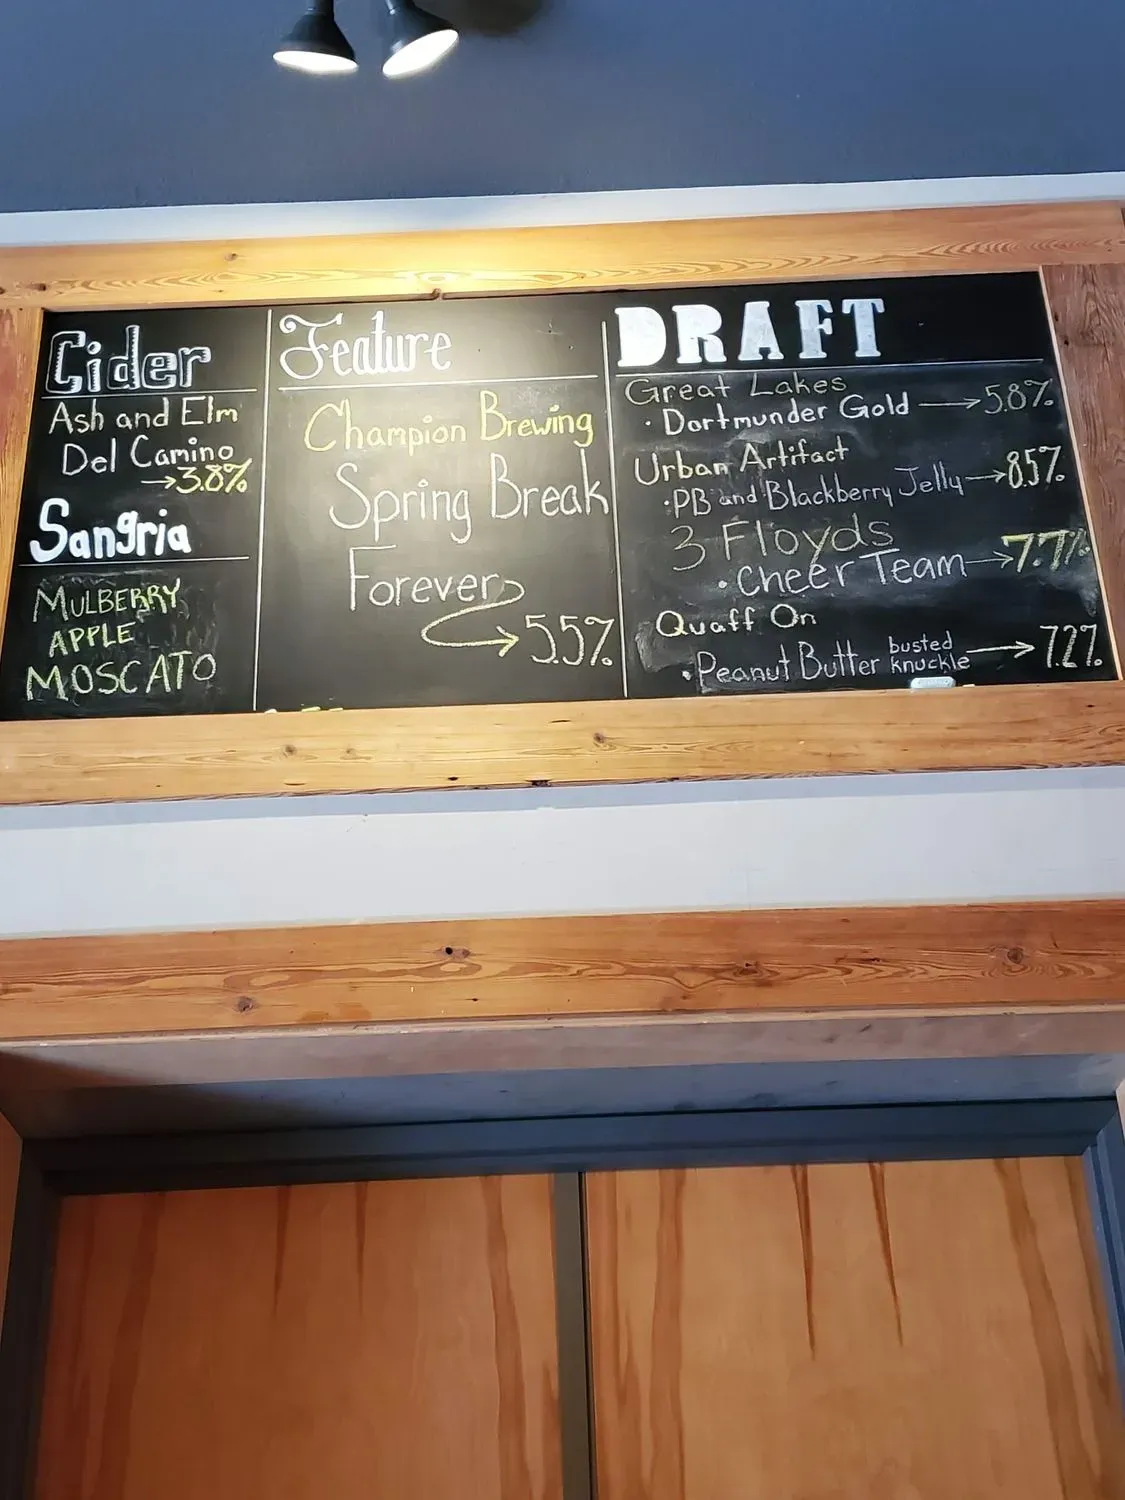 Cider
Ash and Elm
Del Camino
→3.8%
Sangria
MULBERRY
APPLE
MOSCATO
Feature
Champion Brewing
Spring Break
Forever
→5.5%
DRAFT
Great Lakes
· Dortmunder Gold → 5.8%
Urban Artifact
· PB and Blackberry Jelly → 8.5%
3 Floyds
· Cheer Team → 7.7%
Quaff On
· Peanut Butter busted knuckle → 7.2%